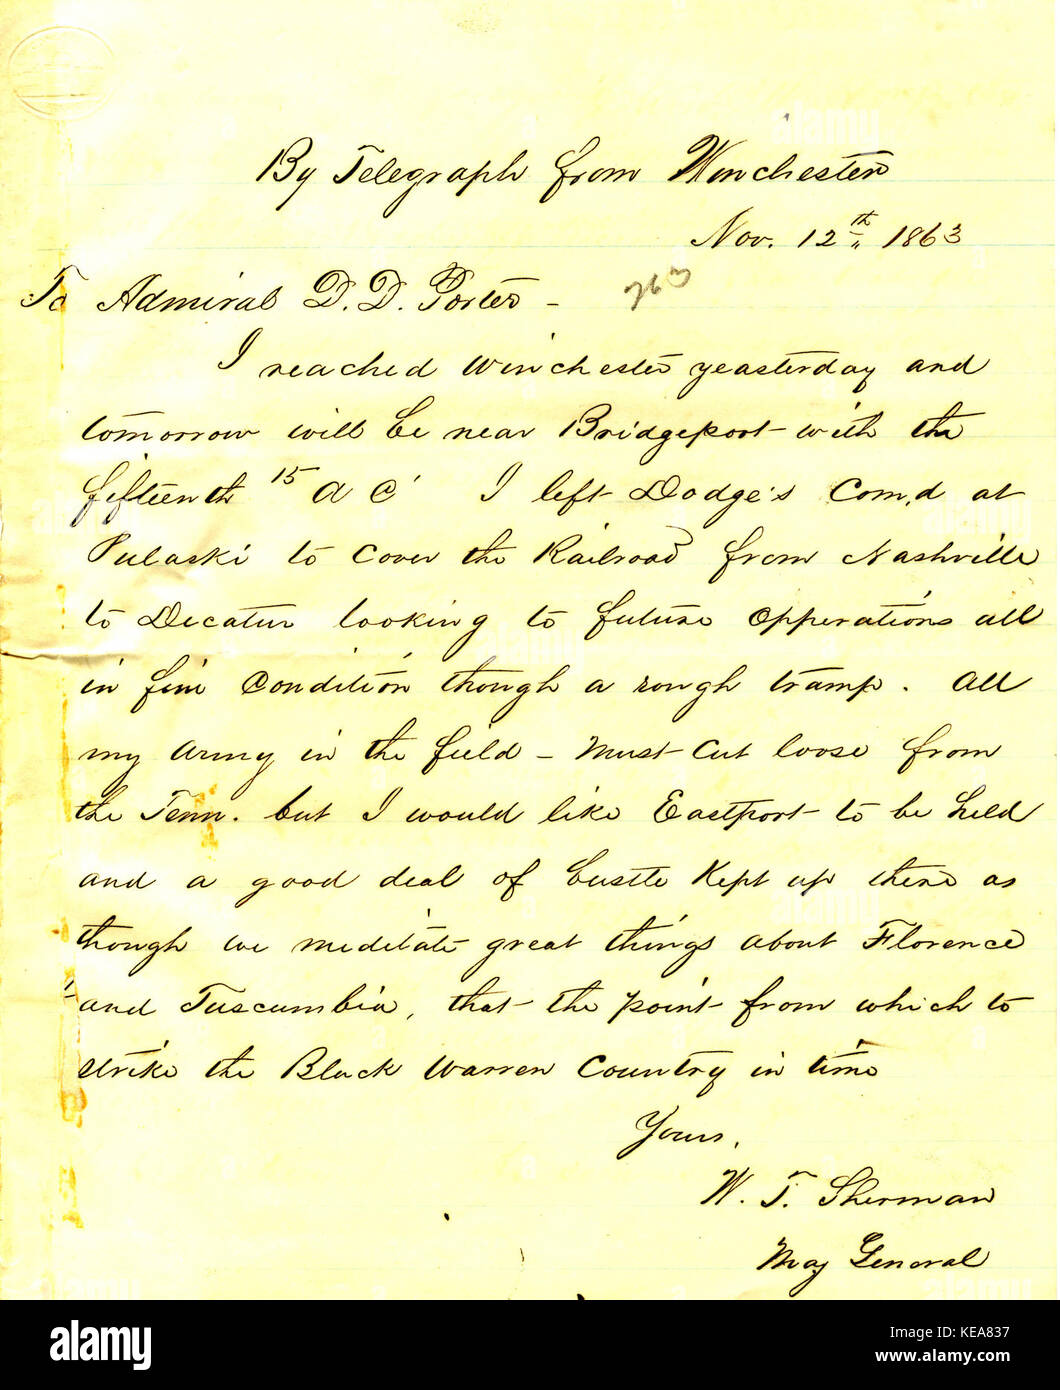 By Telegraph from Winchester
Nov. 12th, 1863
To Admiral D. D. Porter -
263
I reached Winchester yeasterday and
tomorrow will be near Bridgeport with the
fifteenth 15 A C I left Dodge's Com,d at
Pulaski to cover the Railroad from Nashville
to Decatur looking to future opperations all
in fine condition though a rough tramp. All
my army in the field - must cut loose from
the Tenn. but I would like Eastport to be held
and a good deal of bustle kept up there as
though we meditate great things about Florence
and Tuscumbia, that the point from which to
strike the Black Warren Country in time
Yours,
W. T. Sherman
Maj General
alamy
Image ID: KEA837
www.alamy.com